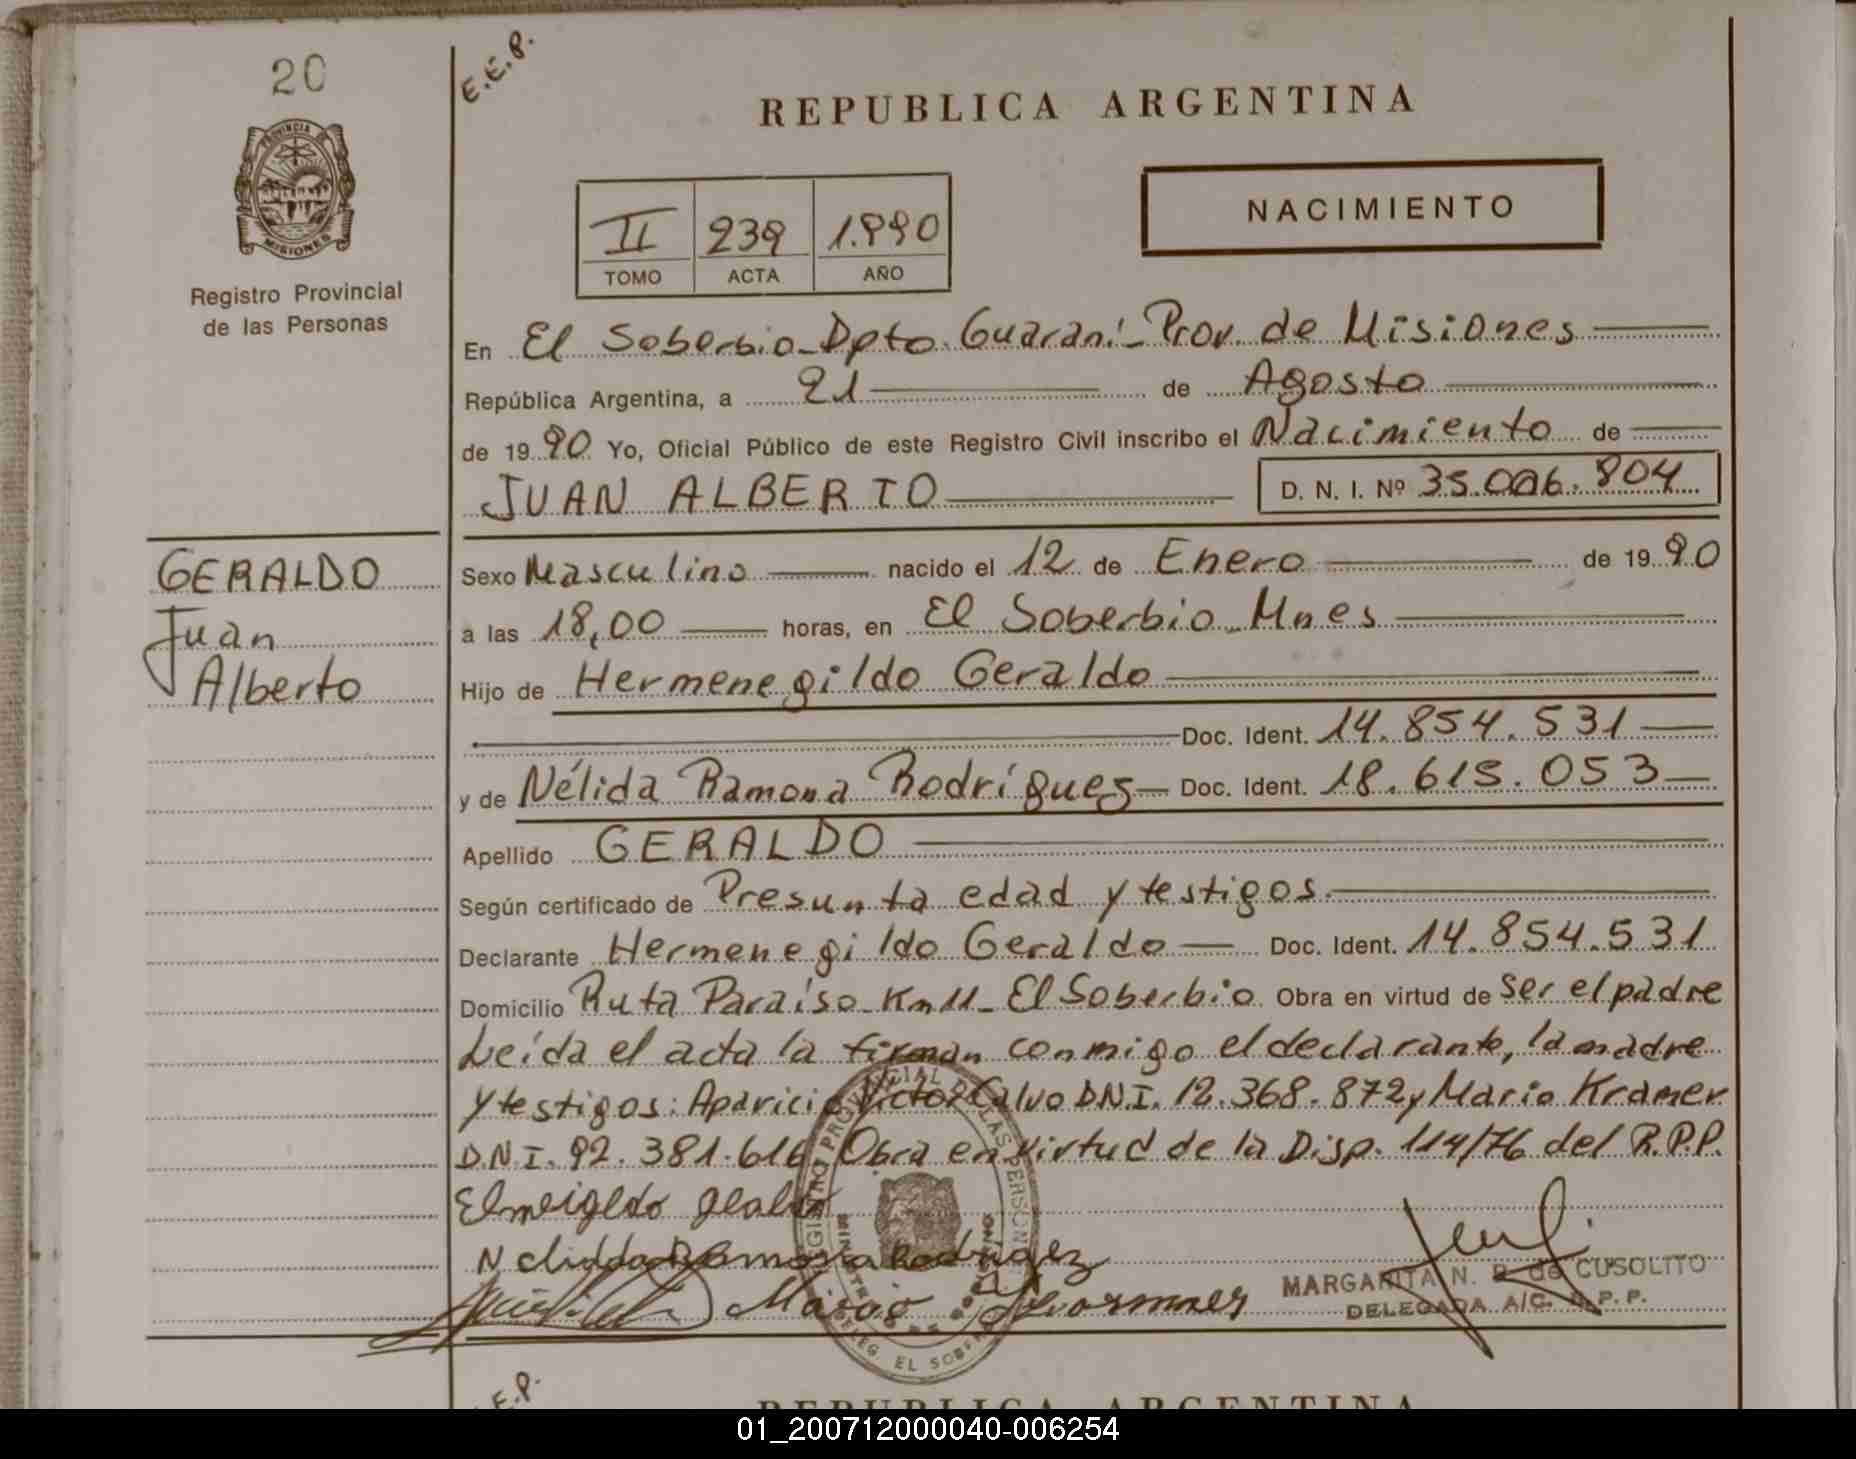 20
E.E.P.
REPUBLICA ARGENTINA
PROVINCIA
MISIONES
Registro Provincial
de las Personas
II 239 1.990
TOMO ACTA AÑO
NACIMIENTO
En El Soberbio-Dpto. Guaraní-Prov. de Misiones
República Argentina, a 21 de Agosto
de 19 90 Yo, Oficial Público de este Registro Civil inscribo el Nacimiento de
JUAN ALBERTO D. N. I. Nº 35.006.804
GERALDO
Juan
Alberto
Sexo Masculino nacido el 12 de Enero de 19 90
a las 18,00 horas, en El Soberbio-Mnes
Hijo de Hermenegildo Geraldo
Doc. Ident. 14.854.531
y de Nélida Ramona Rodríguez Doc. Ident. 18.615.053
Apellido GERALDO
Según certificado de Presunta edad y testigos.
Declarante Hermenegildo Geraldo Doc. Ident. 14.854.531
Domicilio Ruta Paraíso-Km 11-El Soberbio. Obra en virtud de Ser el padre
Leída el acta la firman conmigo el declarante, la madre
y testigos: Aparicio Victor Calvo D.N.I. 12.368.872 y Mario Kramer
D.N.I. 92.381.616 Obra en virtud de la Disp. 114/76 del R.P.P.
MARGARITA N. de CUSOLITO
DELEGADA A/C. R.P.P.
DELEG. EL SOBERBIO
E.P.
REPUBLICA ARGENTINA
01_200712000040-006254